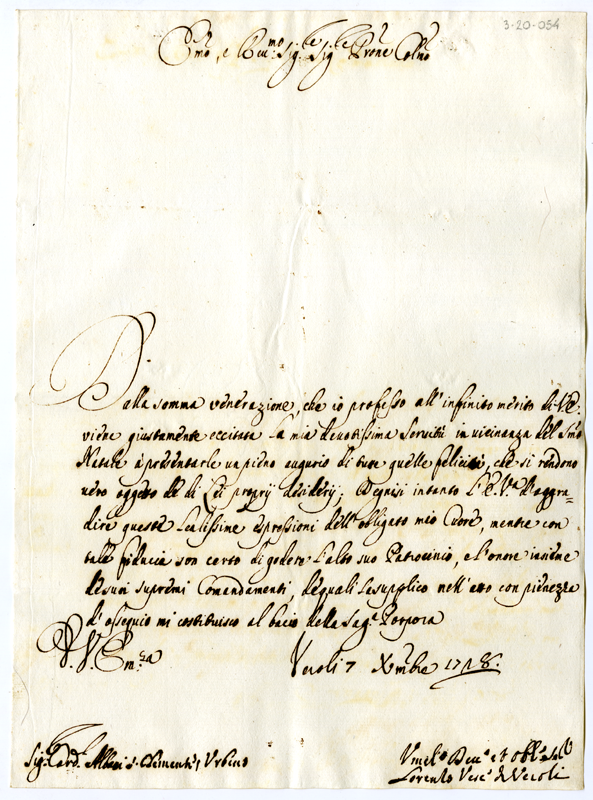 3-20-054
Em.mo, e Reu.mo Sig.re Sig.re Prone Colmo
Dalla somma venerazione, che io professo all'infinito merito di V.E.
viene giustamente eccitata la mia deuotissima seruitù in uicinanza del Smo
Natale à presentarle un pieno augurio di tutte quelle felicità, che si rendono
uero oggetto de di Lei proprij desiderij; Degnisi intanto l'E.V.ra d'aggra=
dire queste lealissime espressioni dell'obligato mio Cuore, mentre con
tale fiducia son certo di godere l'alto suo Patrocinio, e l'onore insieme
de suoi supremi Comandamenti, de quali la supplico nell'atto con pienezza
d'ossequio mi costituisco al bacio della Sag.a Porpora
D. V. Em.za
Veroli 7 Xmbre 1718.
Sig. Card. Albani S. Clemente, Urbino
Vmil.o Deu.o et Obl.o
Lorenzo Vesc.o di Veroli